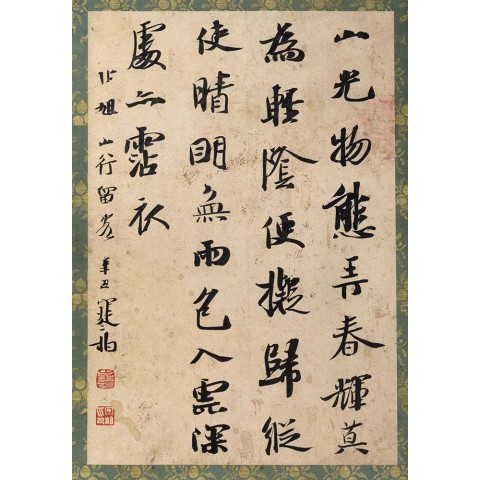 山光物態弄春輝莫
為輕陰便擬歸縱
使晴明無雨色入雲深
處亦霑衣
張旭山行留客 辛丑